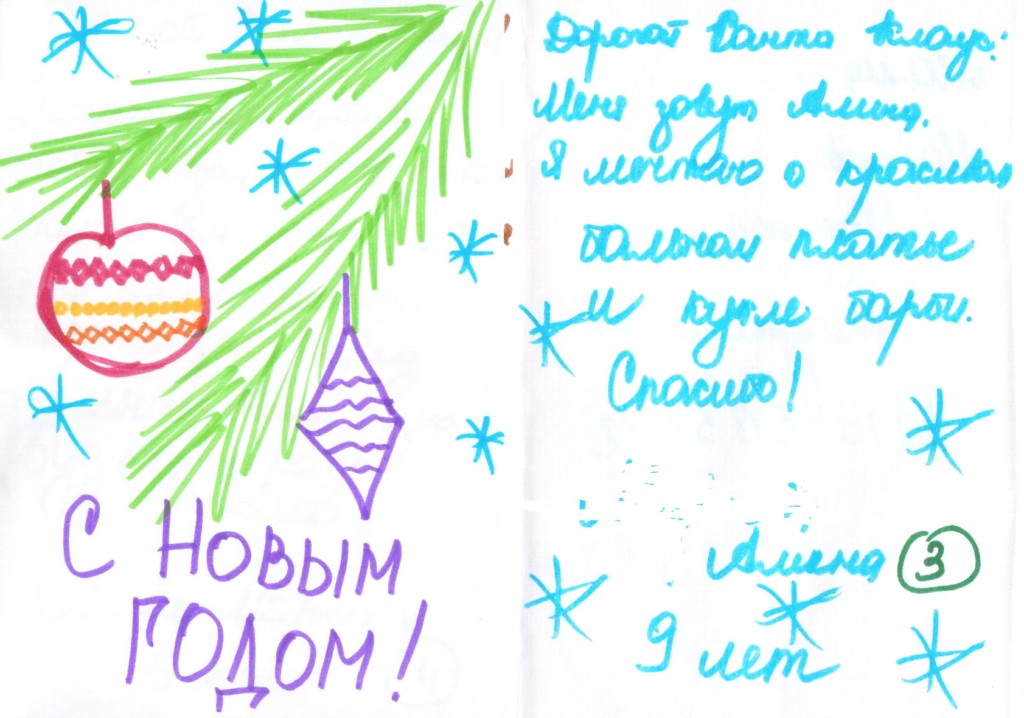 С Новым
годом!
Дорогой Санта Клаус!
Меня зовут Алина.
Я мечтаю о красивом
бальном платье
и кукле барби.
Спасибо!
Алина 3
9 лет